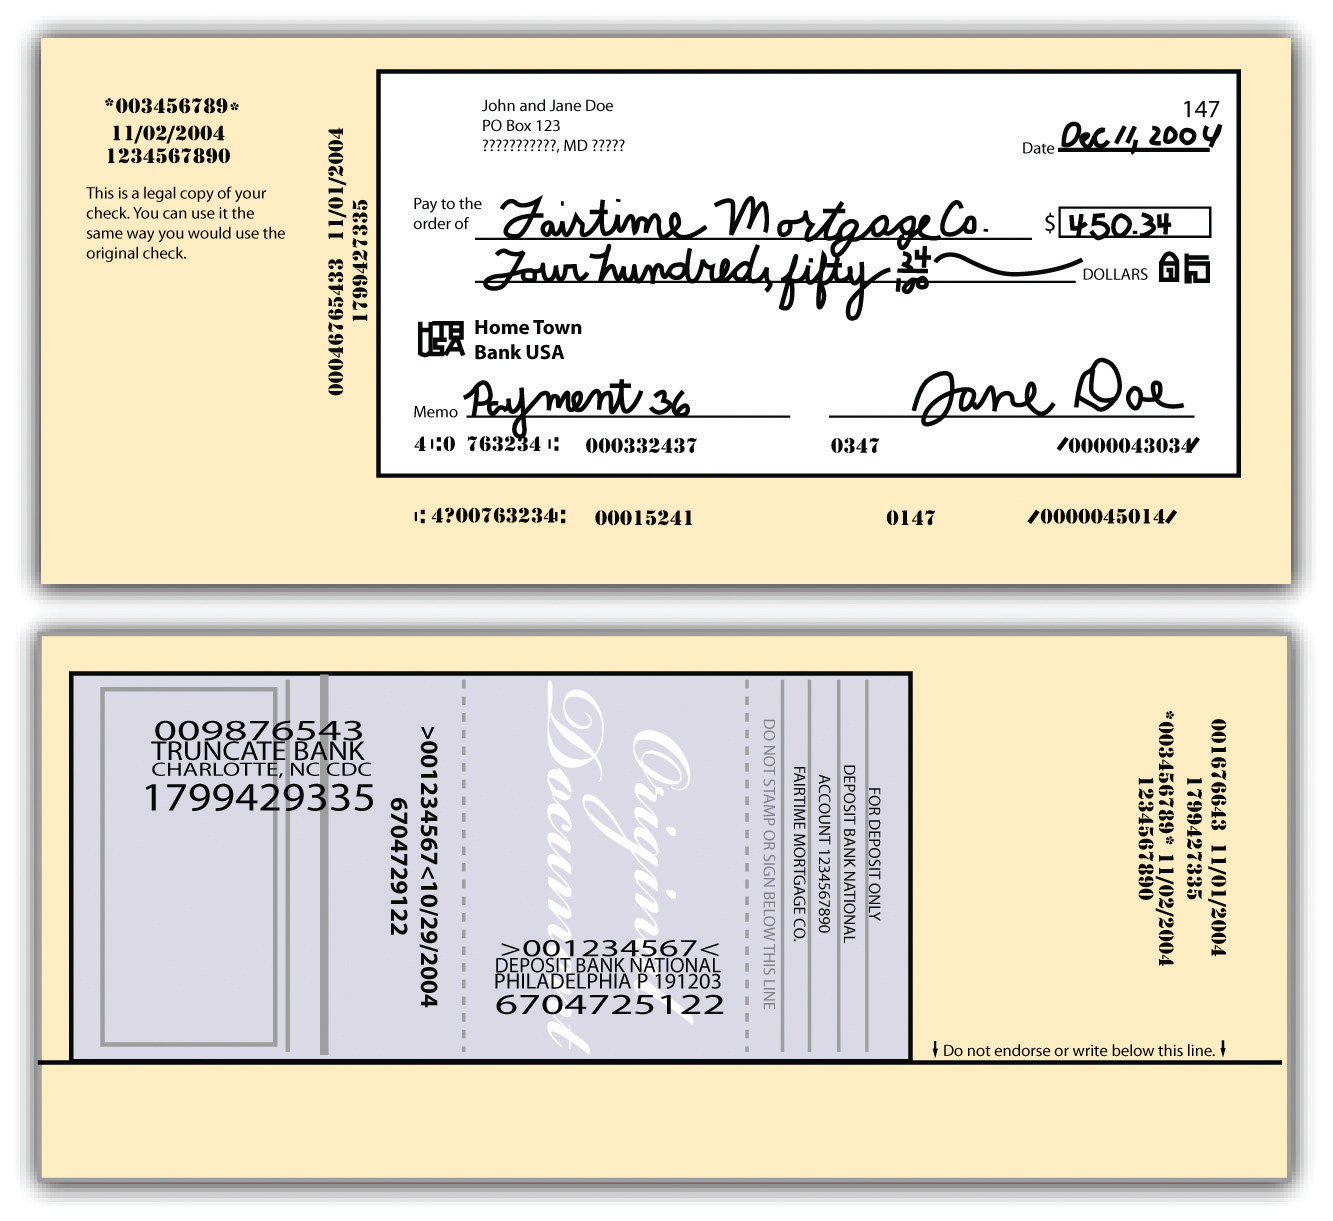 *003456789*
11/02/2004
1234567890
This is a legal copy of your
check. You can use it the
same way you would use the
original check.
00046765433 11/01/2004
1799427335
John and Jane Doe
PO Box 123
???????????, MD ?????
147
Date Dec 11, 2004
Pay to the
order of Fairtime Mortgage Co. $ 450.34
Four hundred, fifty 34/100 DOLLARS
Home Town
Bank USA
Memo Payment 36 Jane Doe
4⑆0 763234⑆ 000332437 0347 /0000043034/
⑆4?00763234⑆ 00015241 0147 /0000045014/
009876543
TRUNCATE BANK
CHARLOTTE, NC CDC
1799429335
>001234567<10/29/2004
6704729122
Original
Document
>001234567<
DEPOSIT BANK NATIONAL
PHILADELPHIA P 191203
6704725122
FOR DEPOSIT ONLY
DEPOSIT BANK NATIONAL
ACCOUNT 1234567890
FAIRTIME MORTGAGE CO.
DO NOT STAMP OR SIGN BELOW THIS LINE
001676643 11/01/2004
1799427335
*003456789* 11/02/2004
1234567890
Do not endorse or write below this line.